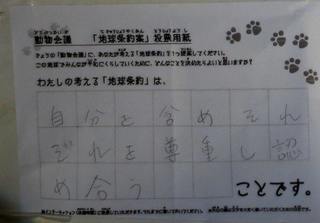 動物会議 「地球条約案」投票用紙
きょうの「動物会議」に、あなたが考える「地球条約」を1つ提案してください。
この地球でみんなが平和にくらしていくために、どんなことを決めたらよいと思いますか?
わたしの考える「地球条約」は、
自分を含めそれ
ぞれを尊重し認
め合う
ことです。